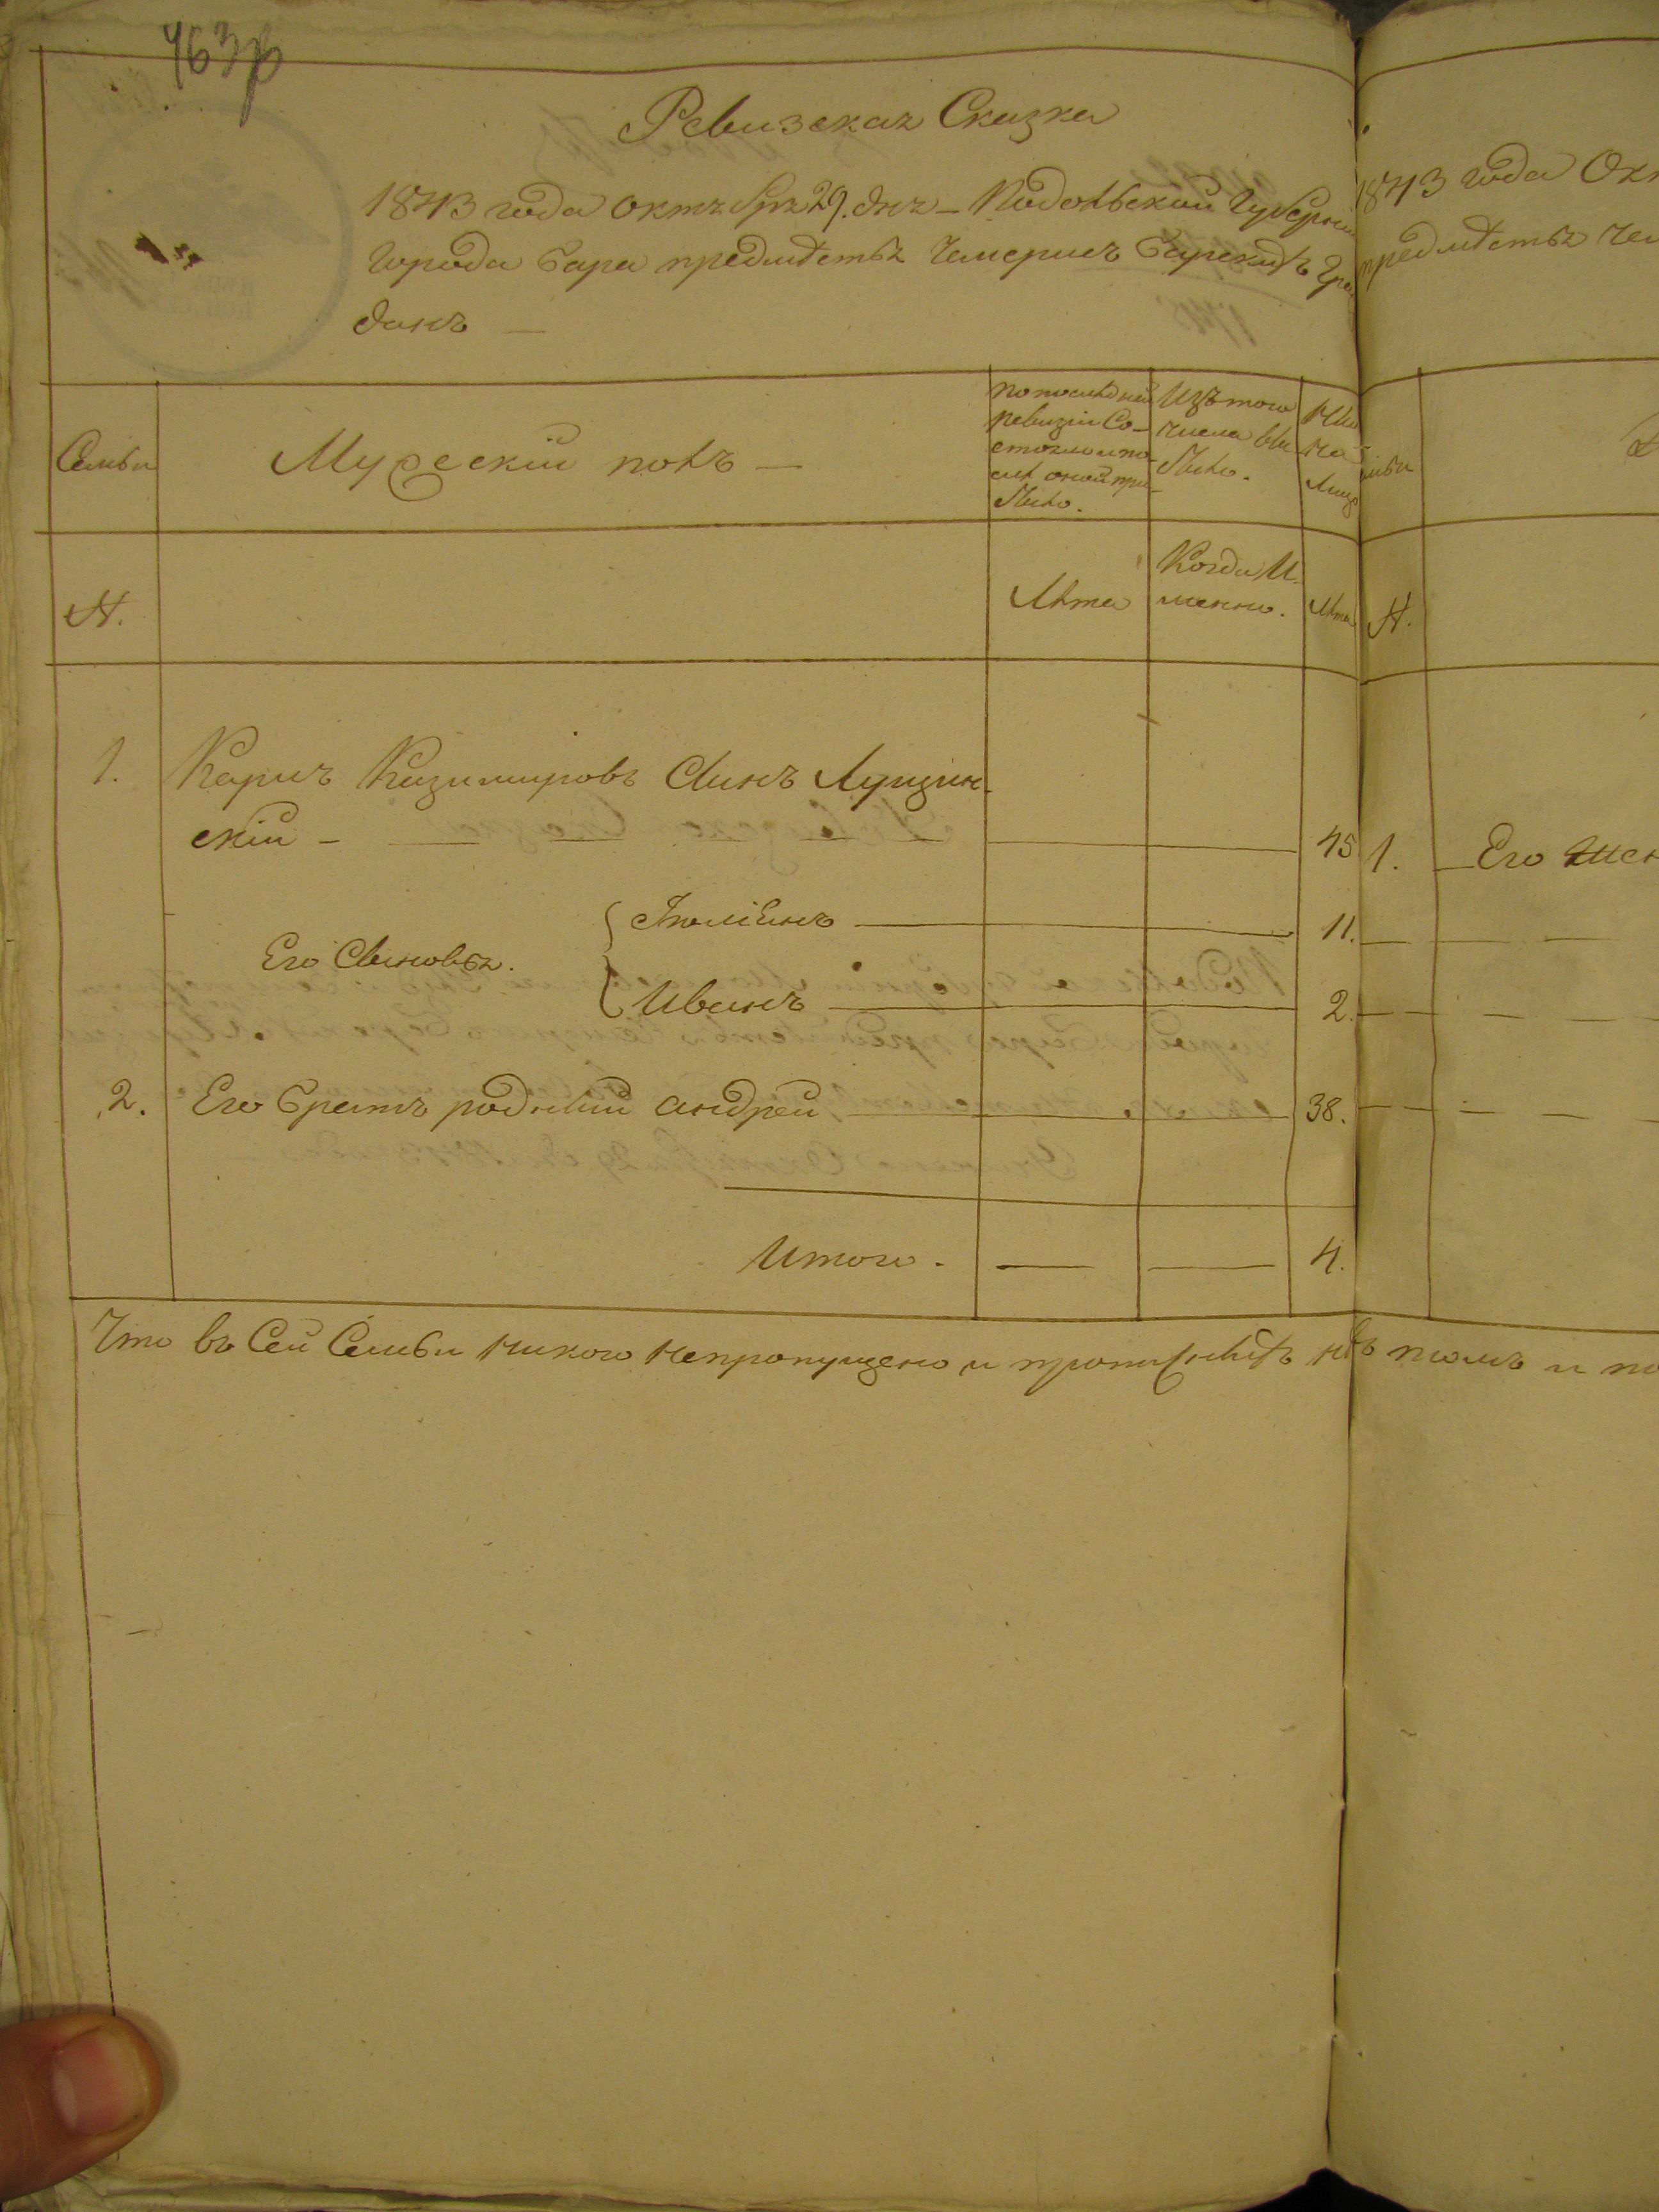 463
Ревизская Сказка
1843 года октября 29. дня – Подольской Губернии
города Бара предместья Чемерис Барских Гра
данъ —
Семьи
Мужескій полъ —
По последней
ревизіи Со-
стояло и по-
слѣ оной при-
было.
Изъ того
числа вы
было.
Ны
не
лицо
N.
Лѣта
Когда И-
менно.
Лѣта
1. Карлъ Казимировъ Сынъ Лущин-
скій – 45
Его Сыновья.
Юліянъ 11.
Иванъ 2.
2. Его Братъ родный андрей 38.
Итого. 4.
Что въ Сей Семьи никого непропущено и
1843 года Окт
предместья Чем
N.
1. Его жен